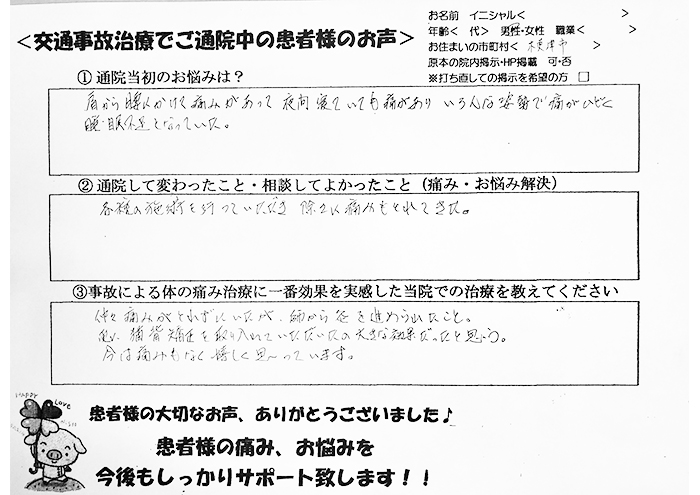 お名前 イニシャル< >
<交通事故治療でご通院中の患者様のお声>
年齢< 代> 男性・女性 職業< >
お住まいの市町村< 木更津市 >
原本の院内掲示・HP掲載 可・否
※打ち直しての掲示を希望の方 □
①通院当初のお悩みは？
肩から腰にかけて痛みがあって 夜間寝ていても痛があり いろんな姿勢で痛がひどく
睡眠不足となっていた。
②通院して変わったこと・相談してよかったこと（痛み・お悩み解決）
各種の施術を行っていただき 除々に痛みもとれてきた。
③事故による体の痛み治療に一番効果を実感した当院での治療を教えてください
痛みがとれずにいたが、 から を進められたこと。
猫背矯正を取り入れていただいたの大きな効果だったと思う。
今は痛みもなく嬉しく思っています。
Happy
Love
患者様の大切なお声、ありがとうございました♪
患者様の痛み、お悩みを
今後もしっかりサポート致します！！